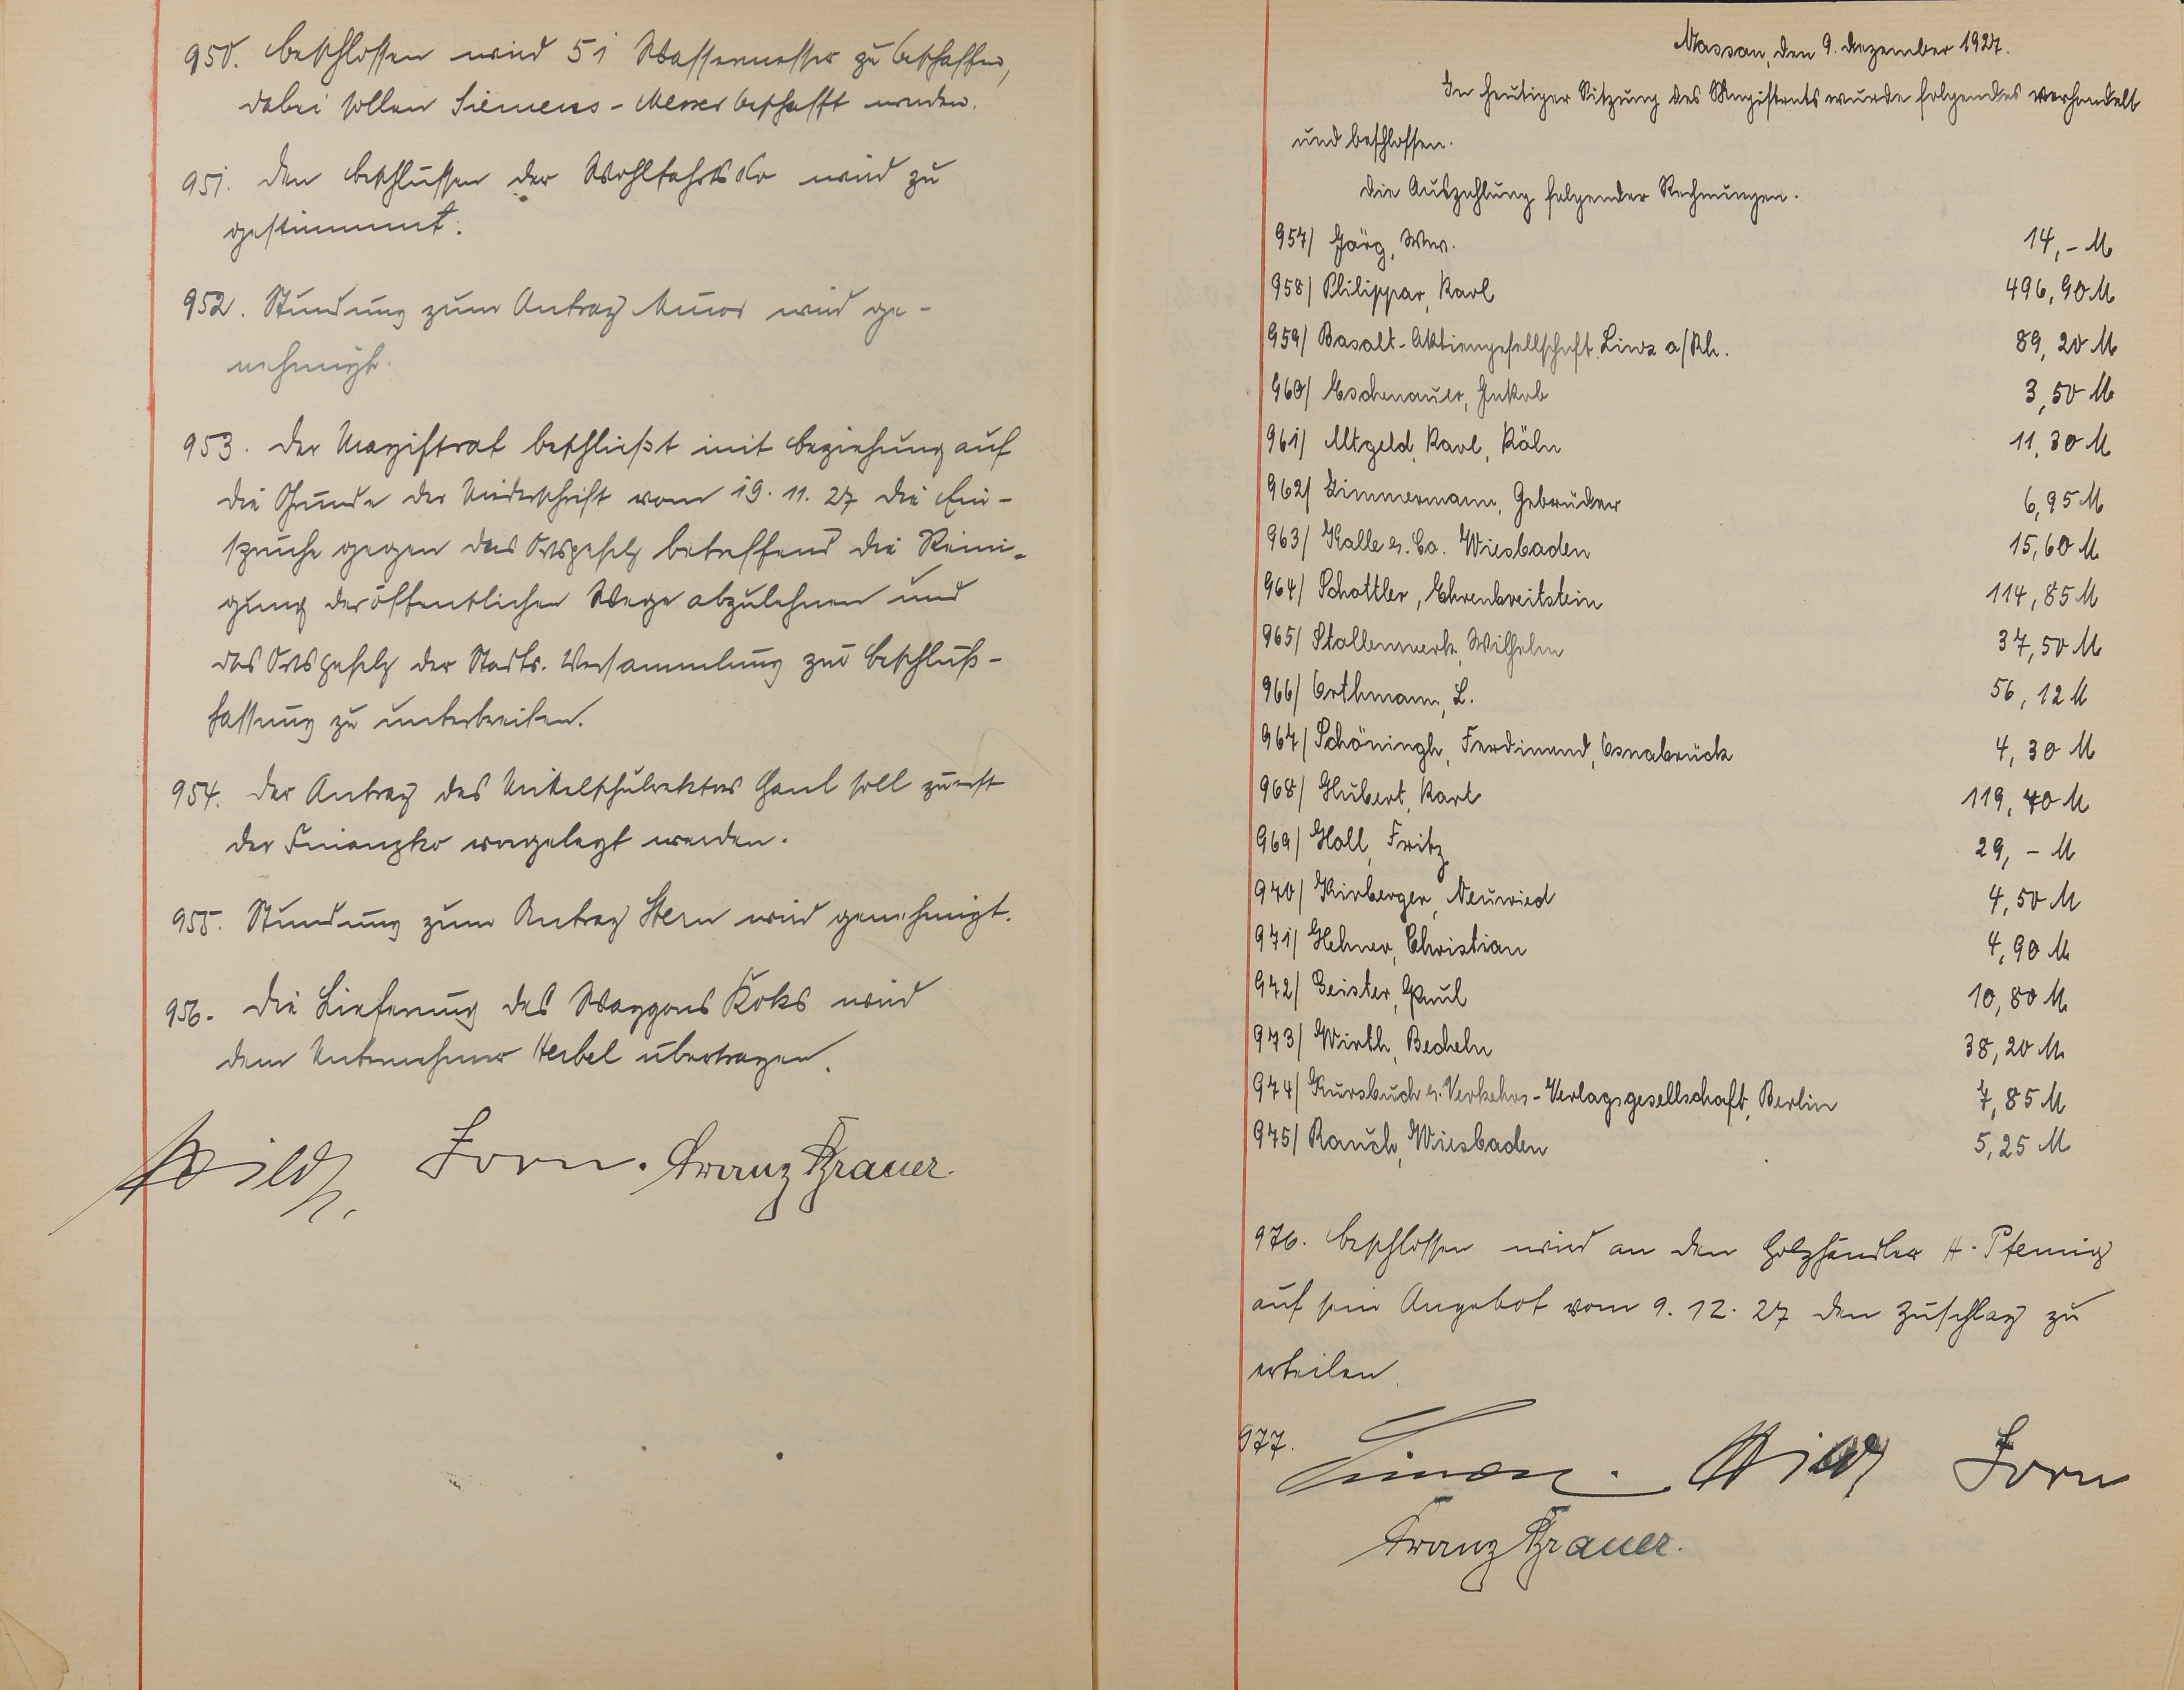 950. Beschlossen wird 51 Wassermesser zu beschaffen,
dabei sollen Siemens-Messer beschafft werden.
951. Den Beschlüssen der Wohlfahrtsko wird zu
gestimmt.
952. Stundung zum Antrag wird ge-
nehmigt.
953. Der Magistrat beschließt mit Beziehung auf
die Gründe der Niederschrift vom 19. 11. 27 die Ein-
sprüche gegen das Ortsgesetz betreffend die Reini-
gung der öffentlichen Wege abzulehnen und
das Ortsgesetz der Stadtv. Versammlung zur Beschluß-
fassung zu unterbreiten.
954. Der Antrag des Mittelschulrektors Gaul soll zuerst
der Finanzko vorgelegt werden.
955. Stundung zum Antrag Stern wird genehmigt.
956. Die Lieferung des Waggons Koks wird
dem Unternehmer Herbel übertragen.
Zorn. Franz Brauer.
Nassau, den 9. Dezember 1927.
In heutiger Sitzung des Magistrats wurde folgendes verhandelt
und beschlossen.
Die Auszahlung folgender Rechnungen.
957/ Jörg, Wwe. 14,- M
958/ Philippar, Karl 496,90 M
959/ Basalt-Aktiengesellschaft Linz a/Rh. 89,20 M
960/ Eschenauer, Jakob 3,50 M
961/ Altgeld, Karl, Köln 11,30 M
962/ Zimmermann, Gebrüder 6,95 M
963/ Kalle u. Co. Wiesbaden 15,60 M
964/ Schottler, Ehrenbreitstein 114,85 M
965/ Stallenwerk, Wilhelm 37,50 M
966/ Orthmann, L. 56,12 M
967/ Schöningh, Ferdinand, Osnabrück 4,30 M
968/ Hubert, Karl 119,40 M
969/ Holl, Fritz 29,- M
970/ Kirberger, Neuwied 4,50 M
971/ Hehner, Christian 4,90 M
972/ Geister, Paul 10,80 M
973/ Wirth, Becheln 38,20 M
974/ Kursbuch u. Verkehrs-Verlagsgesellschaft, Berlin 7,85 M
975/ Rauch, Wiesbaden 5,25 M
976. Beschlossen wird an den Holzhändler H. Pfennig
auf sein Angebot vom 9. 12. 27 den Zuschlag zu
erteilen.
977.
Zorn
Franz Brauer.